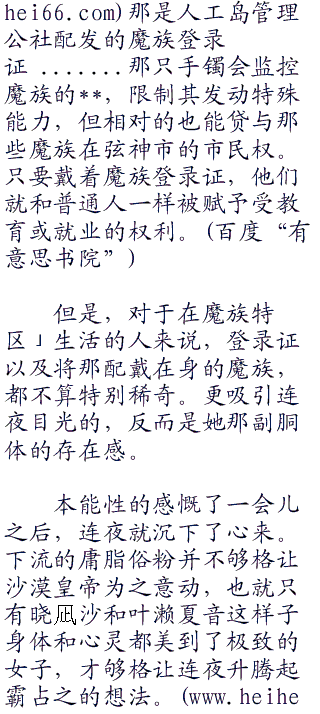 hei66.com)那是人工岛管理
公社配发的魔族登录
证 .......那只手镯会监控
魔族的**，限制其发动特殊
能力，但相对的也能贷与那
些魔族在弦神市的市民权。
只要戴着魔族登录证，他们
就和普通人一样被赋予受教
育或就业的权利。(百度“有
意思书院”)
但是，对于在魔族特
区」生活的人来说，登录证
以及将那配戴在身的魔族，
都不算特别稀奇。更吸引连
夜目光的，反而是她那副胴
体的存在感。
本能性的感慨了一会儿
之后，连夜就沉下了心来。
下流的庸脂俗粉并不够格让
沙漠皇帝为之意动，也就只
有晓凪沙和叶濑夏音这样子
身体和心灵都美到了极致的
女子，才够格让连夜升腾起
霸占之的想法。(www.heihe